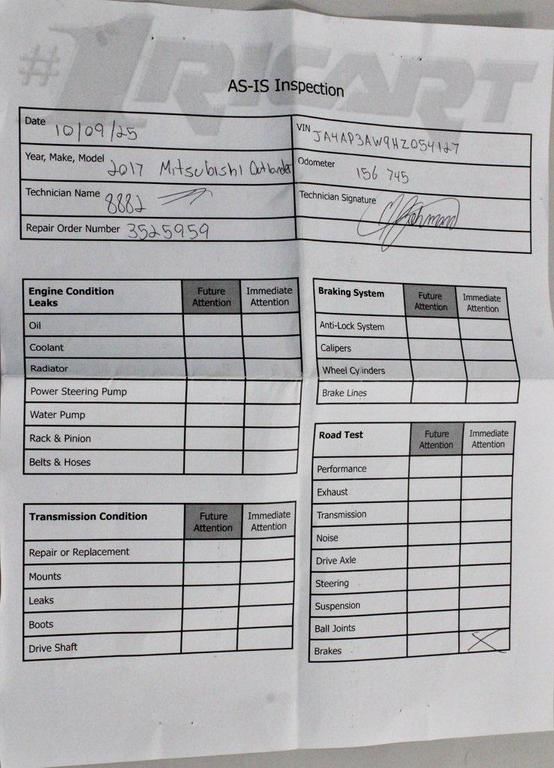 #1RICART
AS-IS Inspection
Date 10/09/25
VIN JA4AP3AW9HZ054127
Year, Make, Model 2017 Mitsubishi Outlander
Odometer 156 745
Technician Name 8882
Technician Signature
Repair Order Number 3525959
Engine Condition Leaks Future Attention Immediate Attention
Oil
Coolant
Radiator
Power Steering Pump
Water Pump
Rack & Pinion
Belts & Hoses
Transmission Condition Future Attention Immediate Attention
Repair or Replacement
Mounts
Leaks
Boots
Drive Shaft
Braking System Future Attention Immediate Attention
Anti-Lock System
Calipers
Wheel Cylinders
Brake Lines
Road Test Future Attention Immediate Attention
Performance
Exhaust
Transmission
Noise
Drive Axle
Steering
Suspension
Ball Joints
Brakes X